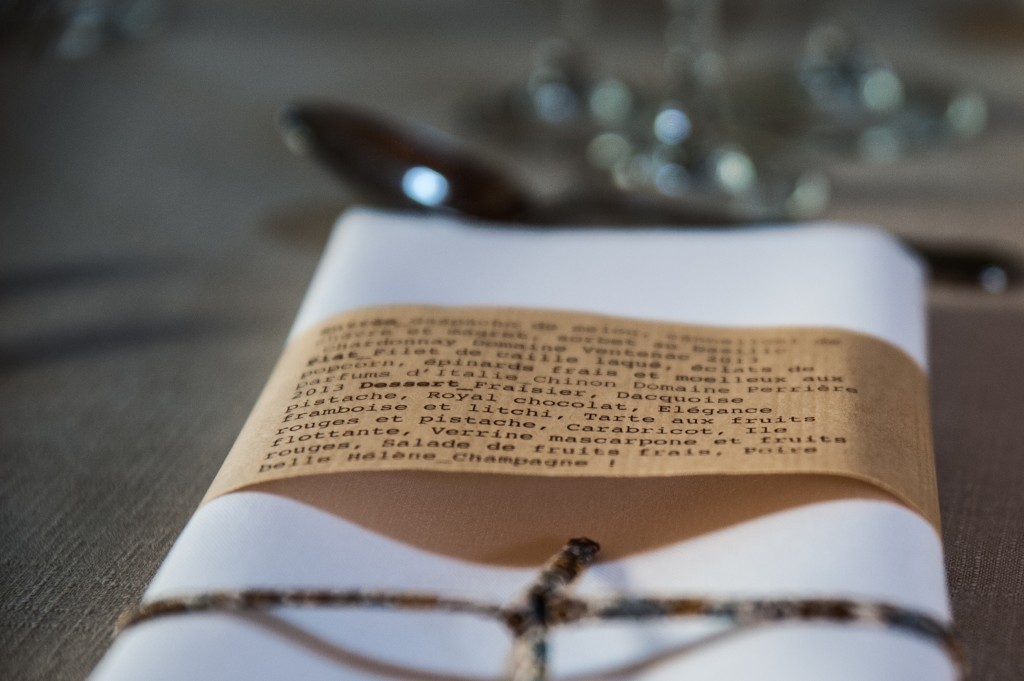 Entrée_Gaspacho de melon, de
chèvre et magret, sorbet
Chardonnay Domaine Ventenac 2011
Plat_Filet de caille laqué, éclats de
popcorn, épinards frais et moelleux aux
parfums d'Italie_Chinon Domaine Perrière
2013 Dessert_Fraisier, Dacquoise
pistache, Royal chocolat, Elégance
framboise et litchi, Tarte aux fruits
rouges et pistache, Carabricot, Ile
flottante, Verrine mascarpone et fruits
rouges, Salade de fruits frais, Poire
Belle Hélène_Champagne !